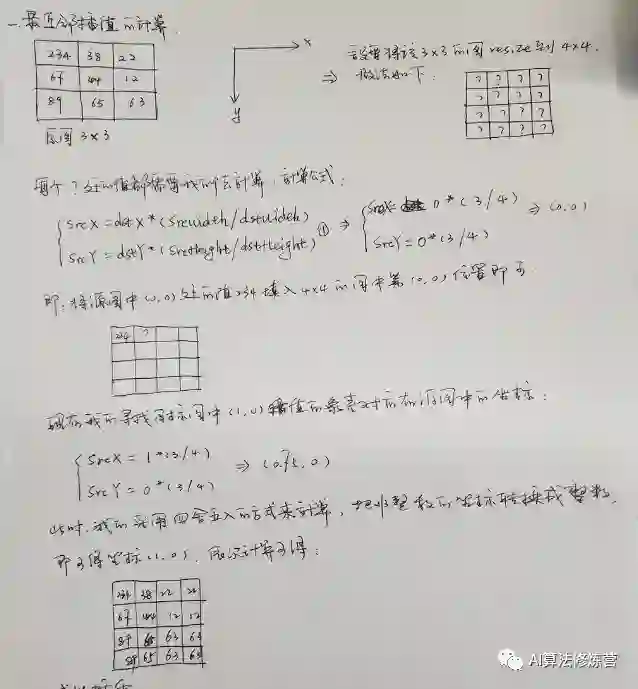 一.最近邻插值的计算.
234 38 22
67 44 12
89 65 63
原图 3×3
x
y
假设要将该3×3的图resize到4×4.
⇒ 做法如下:
? ? ? ?
? ? ? ?
? ? ? ?
? ? ? ?
每个?处的值都需要我们去计算,计算公式:
SrcX=dstX*(srcwidth/dstwidth)
SrcY=dstY*(srcHeight/dstHeight) ①
⇒ SrcX= 0*(3/4)
SrcY=0*(3/4)
⇒(0,0)
即:将源图中(0,0)处的值234填入4×4的图中第(0,0)位置即可
234 ?
现在我们寻找目标图中(1,0)值的象素对应在原图中的坐标:
SrcX = 1*(3/4)
SrcY = 0*(3/4)
⇒ (0.75,0)
此时,我们采用四舍五入的方式来计算,把非整数的坐标转换成整数,
即可得坐标(1,0).依次计算可得:
234 38 22 22
67 44 12 12
89 65 63 63
89 65 63 63
AI算法修炼营